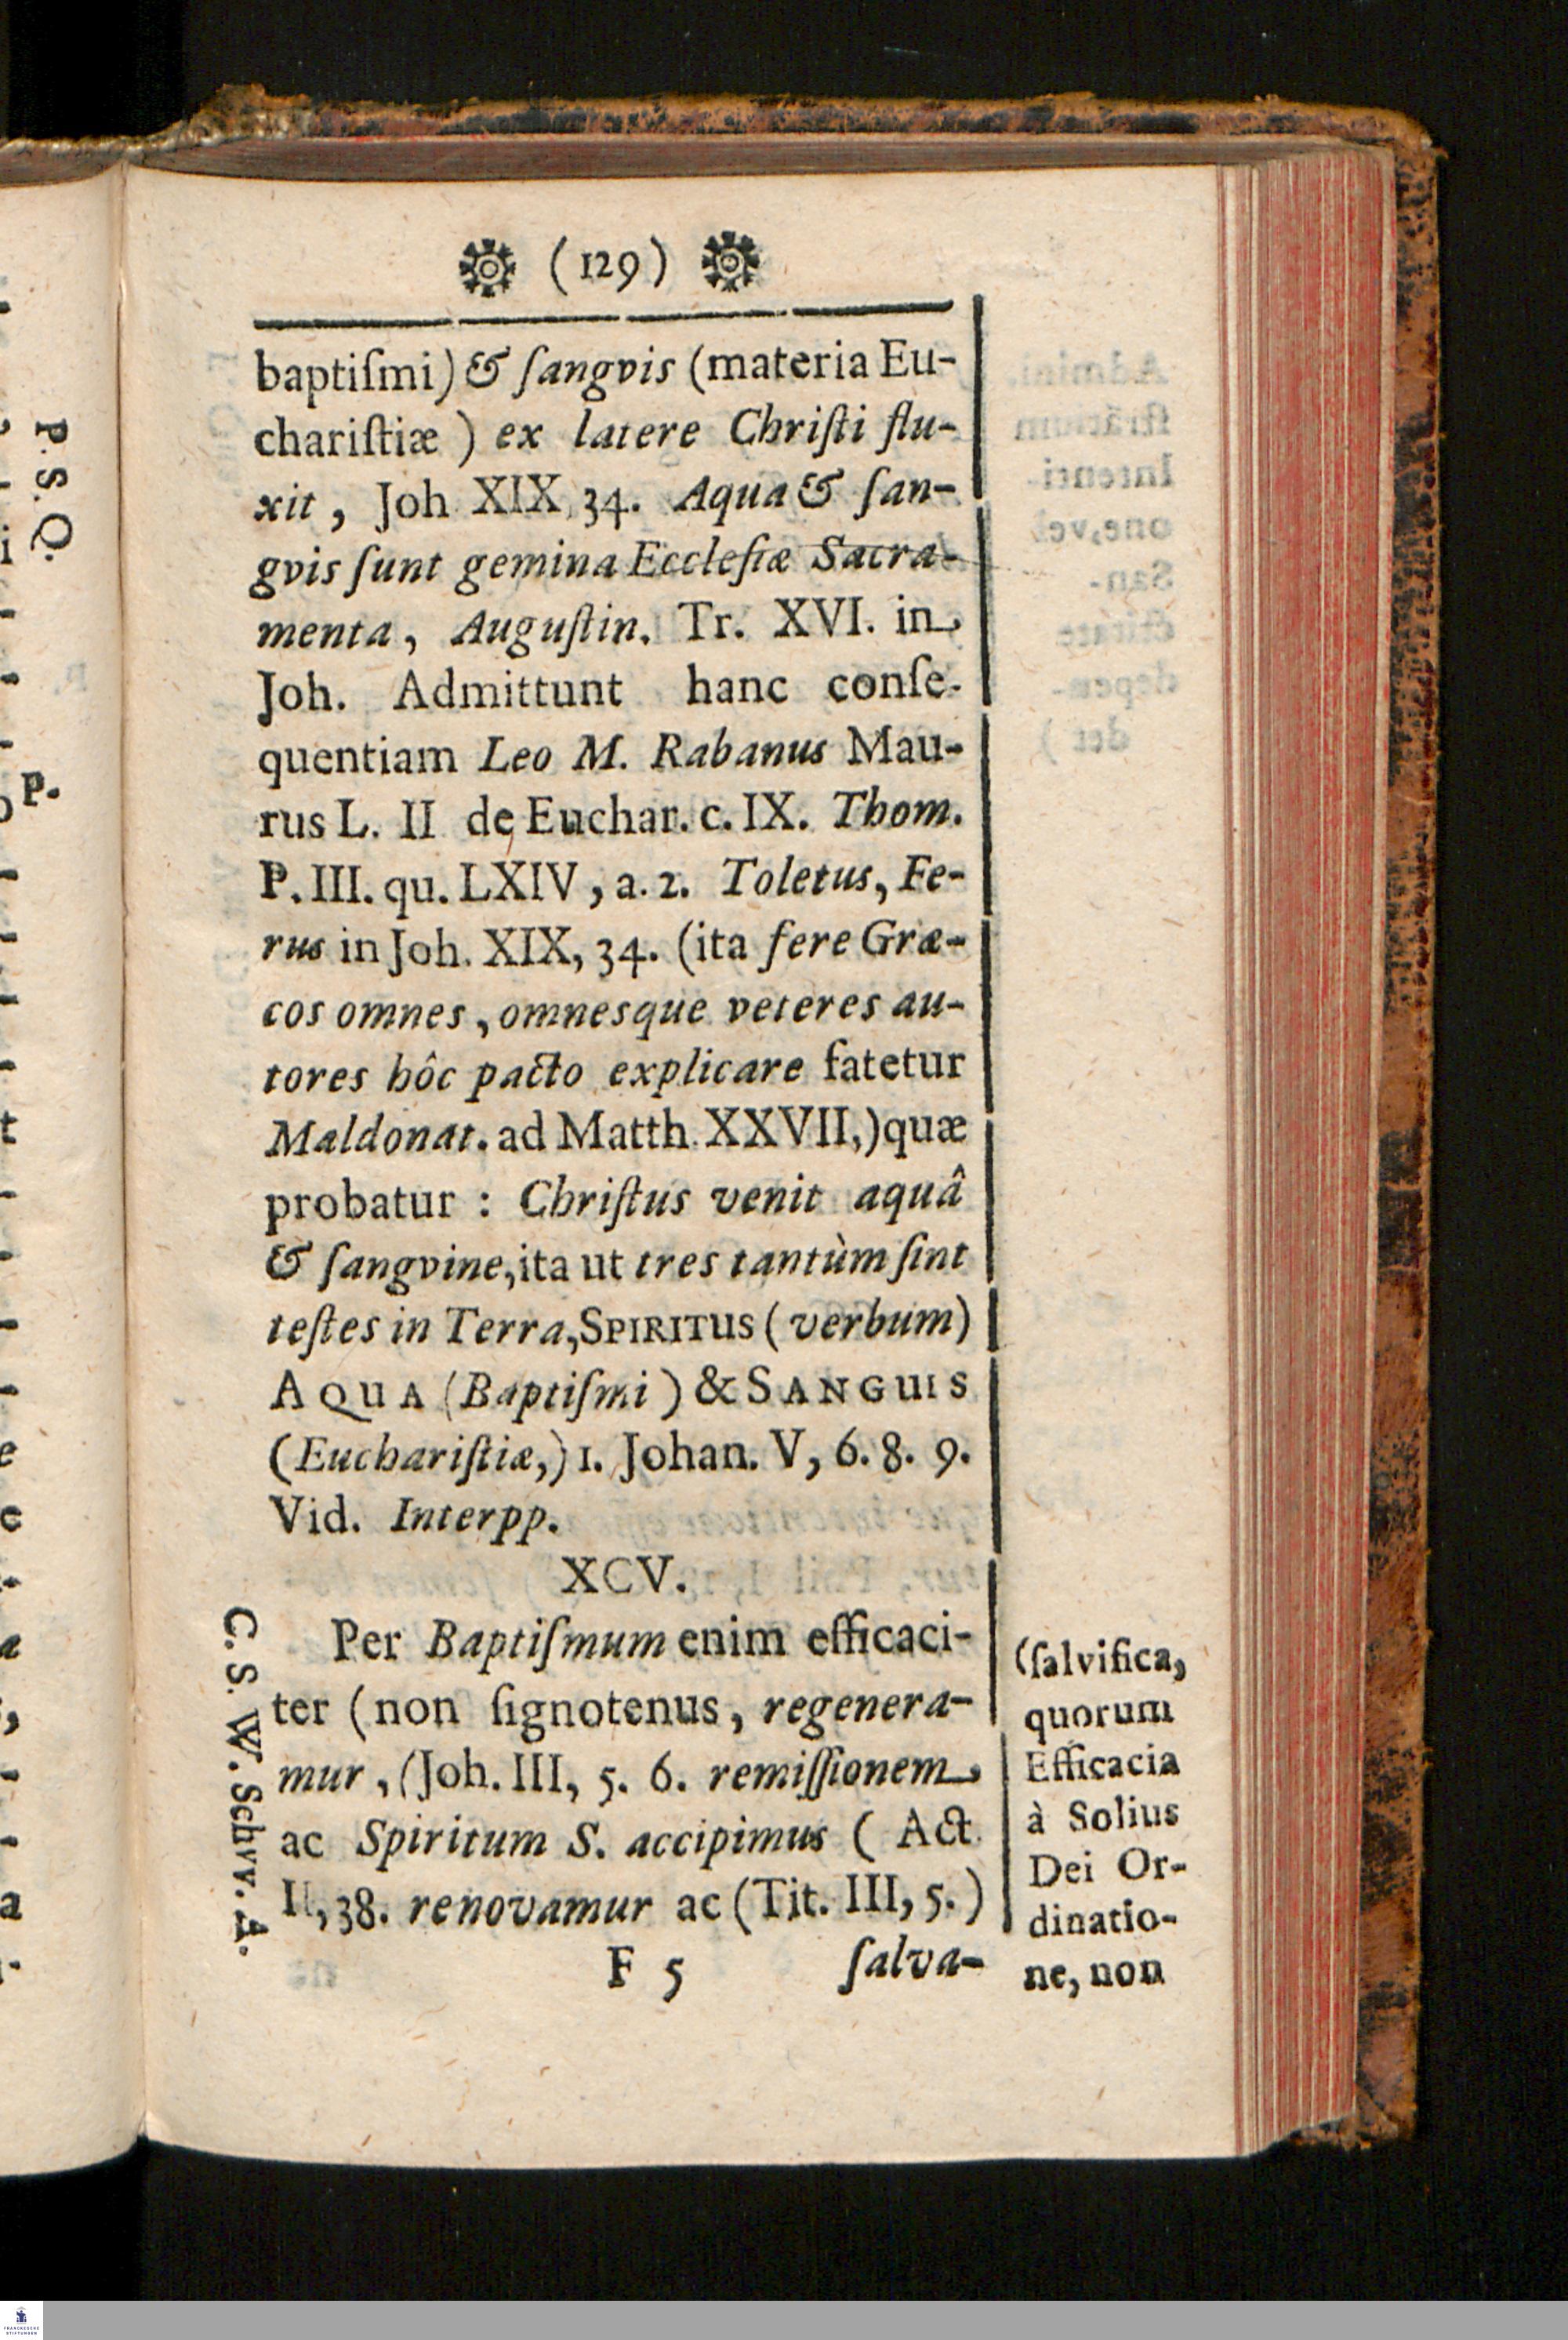 (129)
baptiſmi) & ſangvis (materia Eu-
chariſtiæ ) ex latere Chriſti flu-
xit, Joh XIX, 34. Aqua & ſan-
gvis ſunt gemina Eccleſiæ Sacra-
menta, Auguſtin. Tr. XVI. in
Joh. Admittunt hanc conſe-
quentiam Leo M. Rabanus Mau-
rus L. II de Euchar. c. IX. Thom.
P. III. qu. LXIV, a. 2. Toletus, Fe-
rus in Joh. XIX, 34. (ita fere Græ-
cos omnes, omnesque veteres au-
tores hôc pacto explicare fatetur
Maldonat. ad Matth. XXVII,) quæ
probatur : Chriſtus venit aquâ
& ſangvine, ita ut tres tantùm ſint
teſtes in Terra, SPIRITUS (verbum)
AQUA (Baptiſmi) & SANGUIS
(Euchariſtiæ,) 1. Johan. V, 6. 8. 9.
Vid. Interpp.
XCV.
Per Baptiſmum enim efficaci-
ter (non ſignotenus, regenera-
mur, (Joh. III, 5. 6. remiſſionem
ac Spiritum S. accipimus ( Act.
II, 38. renovamur ac (Tit. III, 5.)
F 5 ſalva-
C. S. W. Schvv. A.
(ſalvifica,
quorum
Efficacia
à Solius
Dei Or-
dinatio-
ne, non
P. S. Q.
P.
FRANCKESCHE
STIFTUNGEN